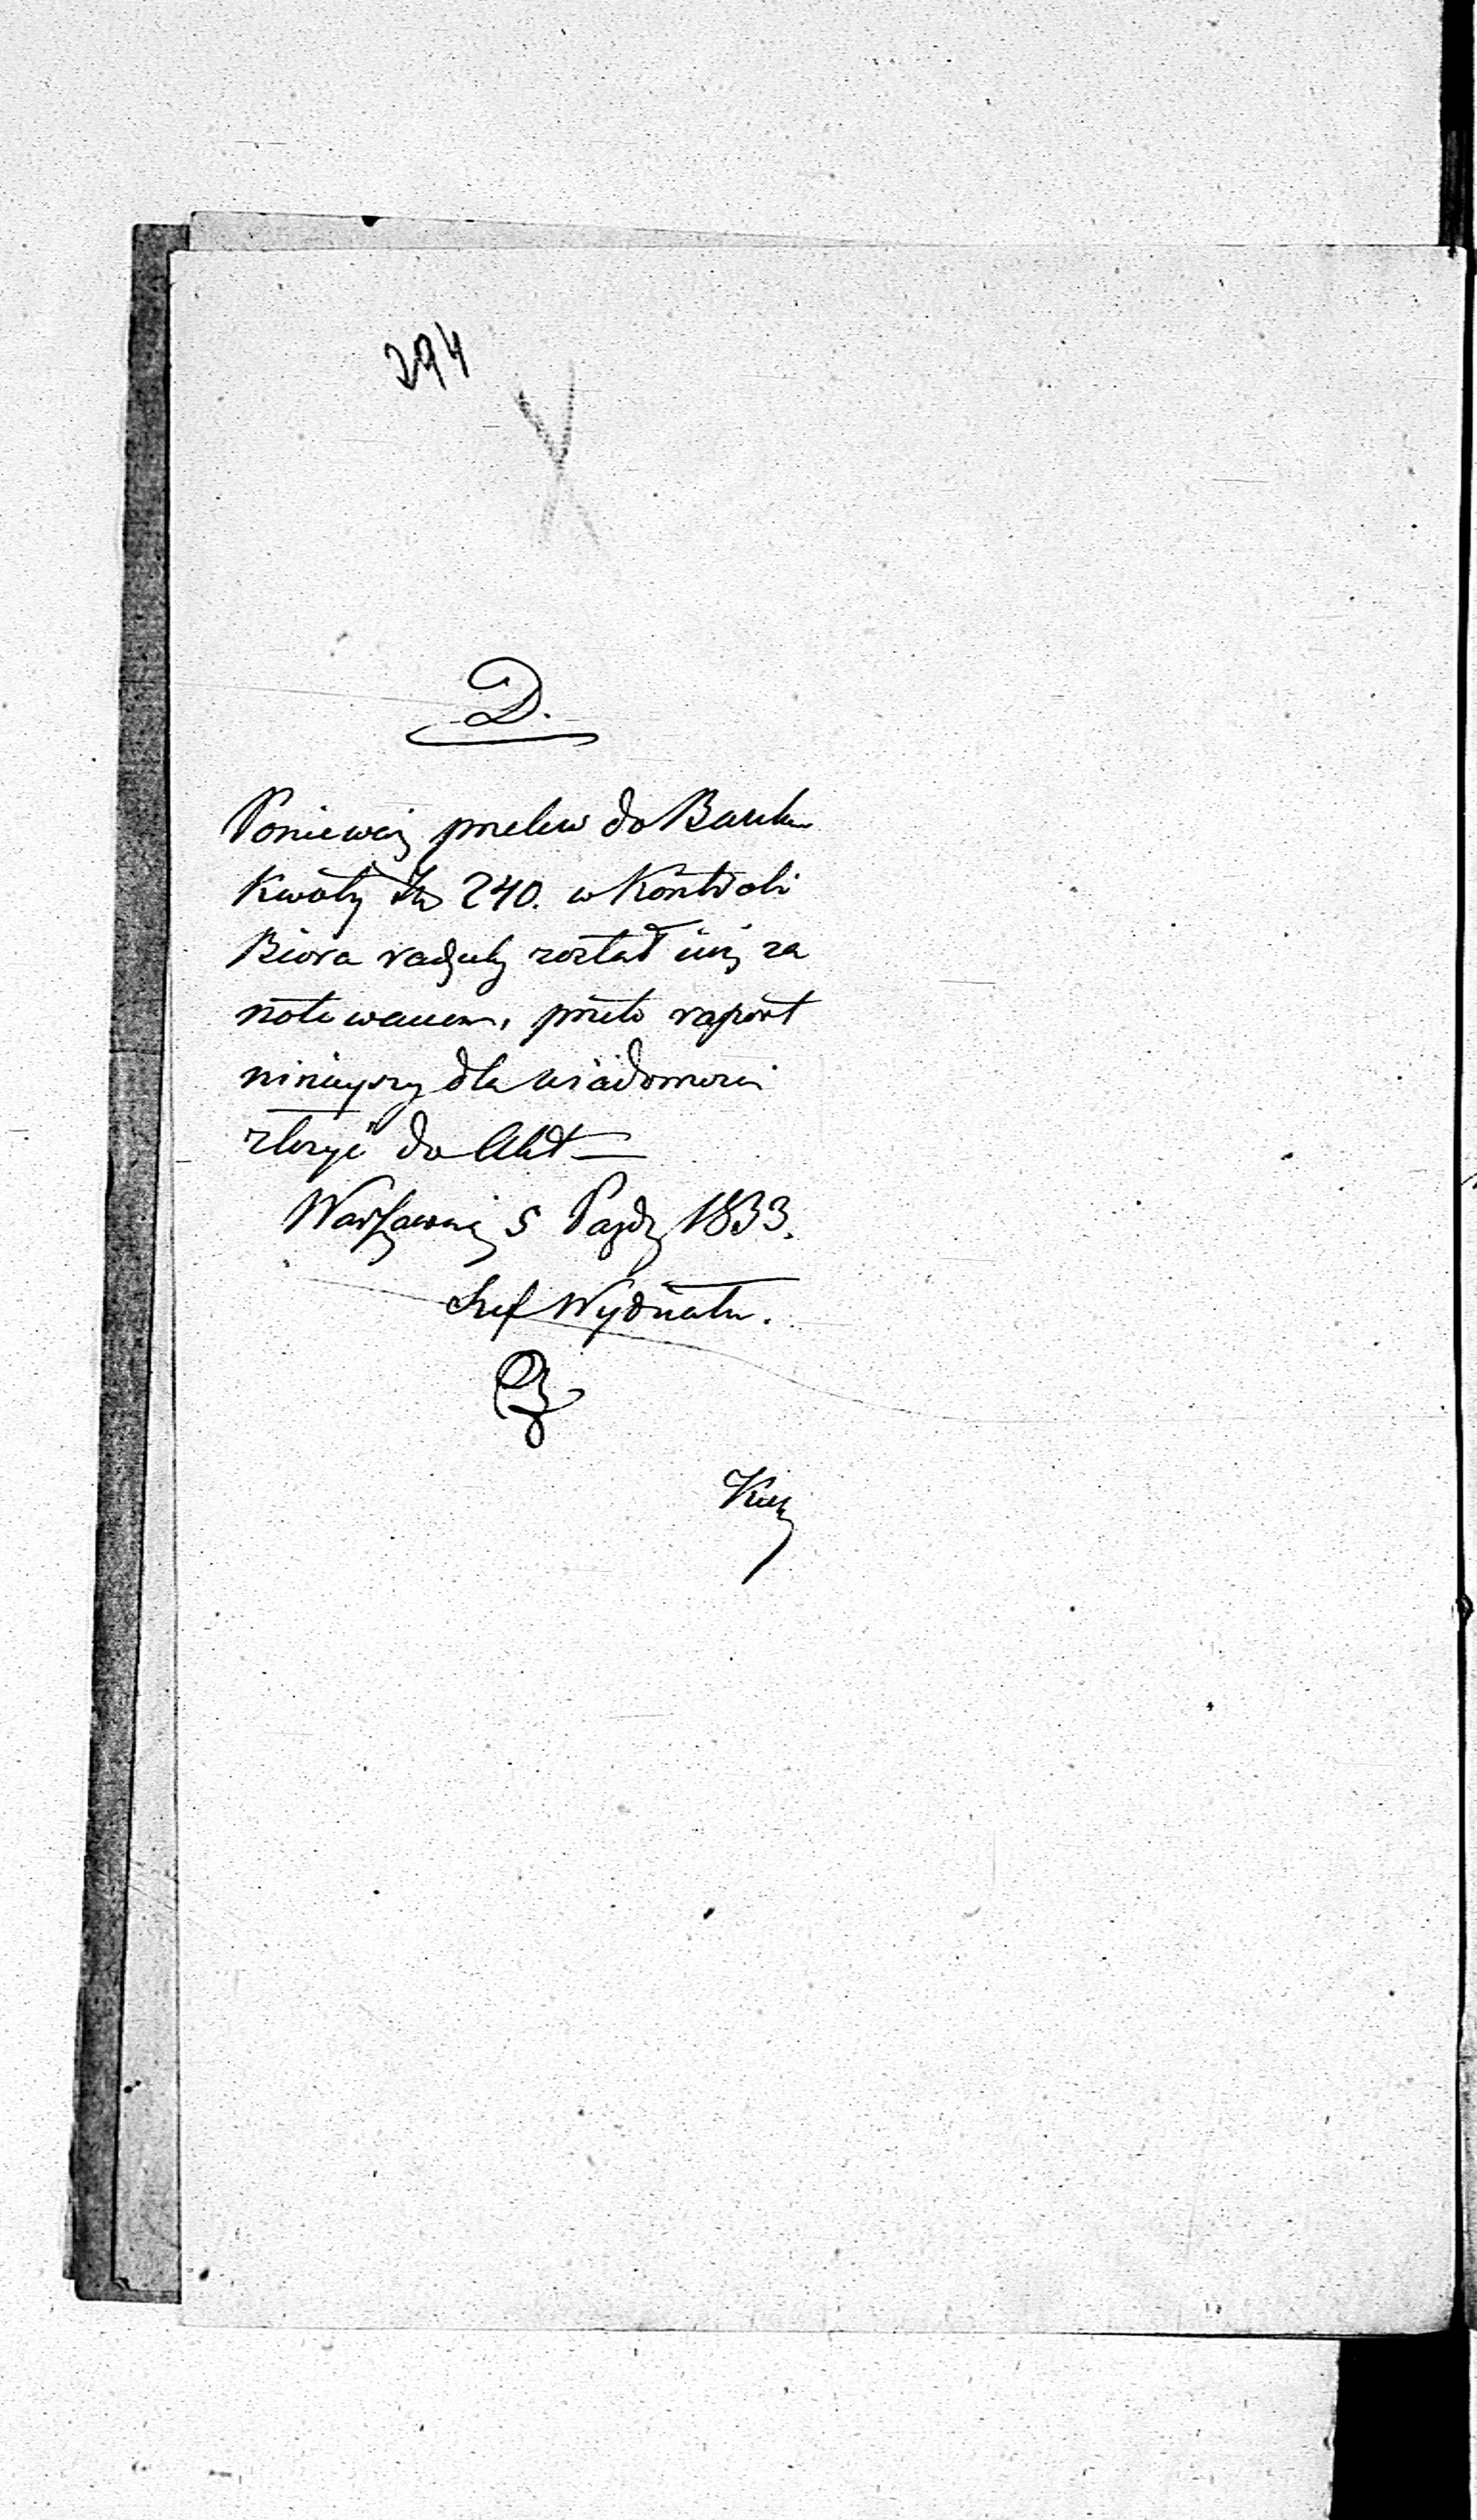 294
D.
Ponieważ przelew do Banku
Kwoty Złp 240. w Kontroli
Biora został iuż za
notowanem, przeto raport
ninieyszy dla wiadomości
złożyć do Akt
Warszawa 5 Paźdz 1833.
Szef Wydziału.